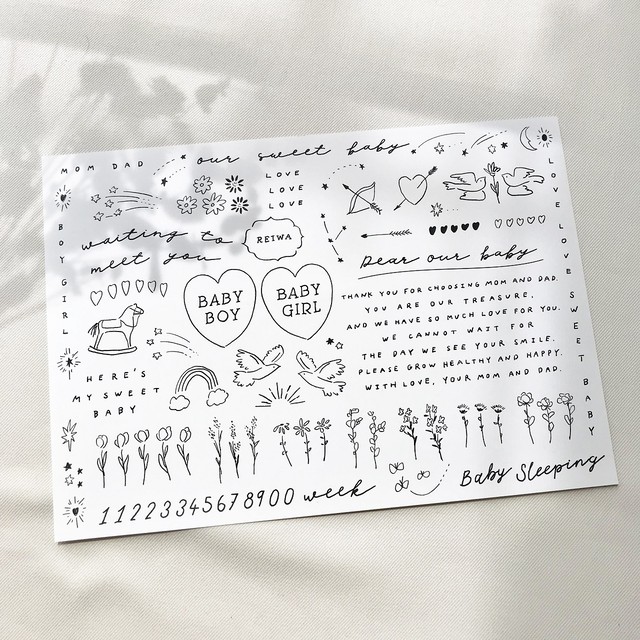 MOM DAD
our sweet baby
LOVE
LOVE
LOVE
BOY GIRL
waiting to
meet you
REIWA
BABY
BOY
BABY
GIRL
Dear our baby
THANK YOU FOR CHOOSING MOM AND DAD.
YOU ARE OUR TREASURE,
AND WE HAVE SO MUCH LOVE FOR YOU.
WE CANNOT WAIT FOR
THE DAY WE SEE YOUR SMILE.
PLEASE GROW HEALTHY AND HAPPY.
WITH LOVE, YOUR MOM AND DAD.
LOVE LOVE SWEET BABY
HERE'S
MY SWEET
BABY
11223345678900 week
Baby Sleeping